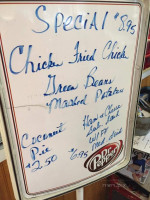 Special $8.95
Chicken Fried Chick
Green Beans
Mashed Potatoes
Coconut
Pie
$2.50
Ham & Cheese
$6.95
Dr Pepper